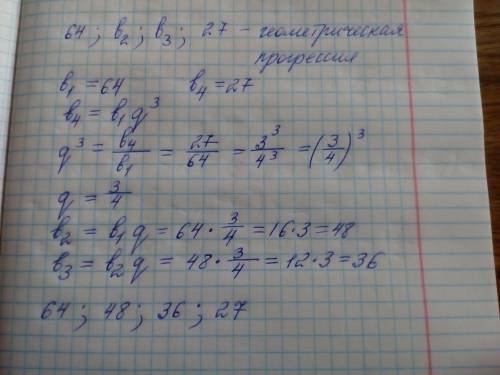 64 ; b₂ ; b₃ ; 27 – геометрическая
прогрессия
b₁ = 64 b₄ = 27
b₄ = b₁q³
q³ = b₄/b₁ = 27/64 = 3³/4³ = (3/4)³
q = 3/4
b₂ = b₁q = 64 · 3/4 = 16·3 = 48
b₃ = b₂q = 48 · 3/4 = 12·3 = 36
64 ; 48 ; 36 ; 27